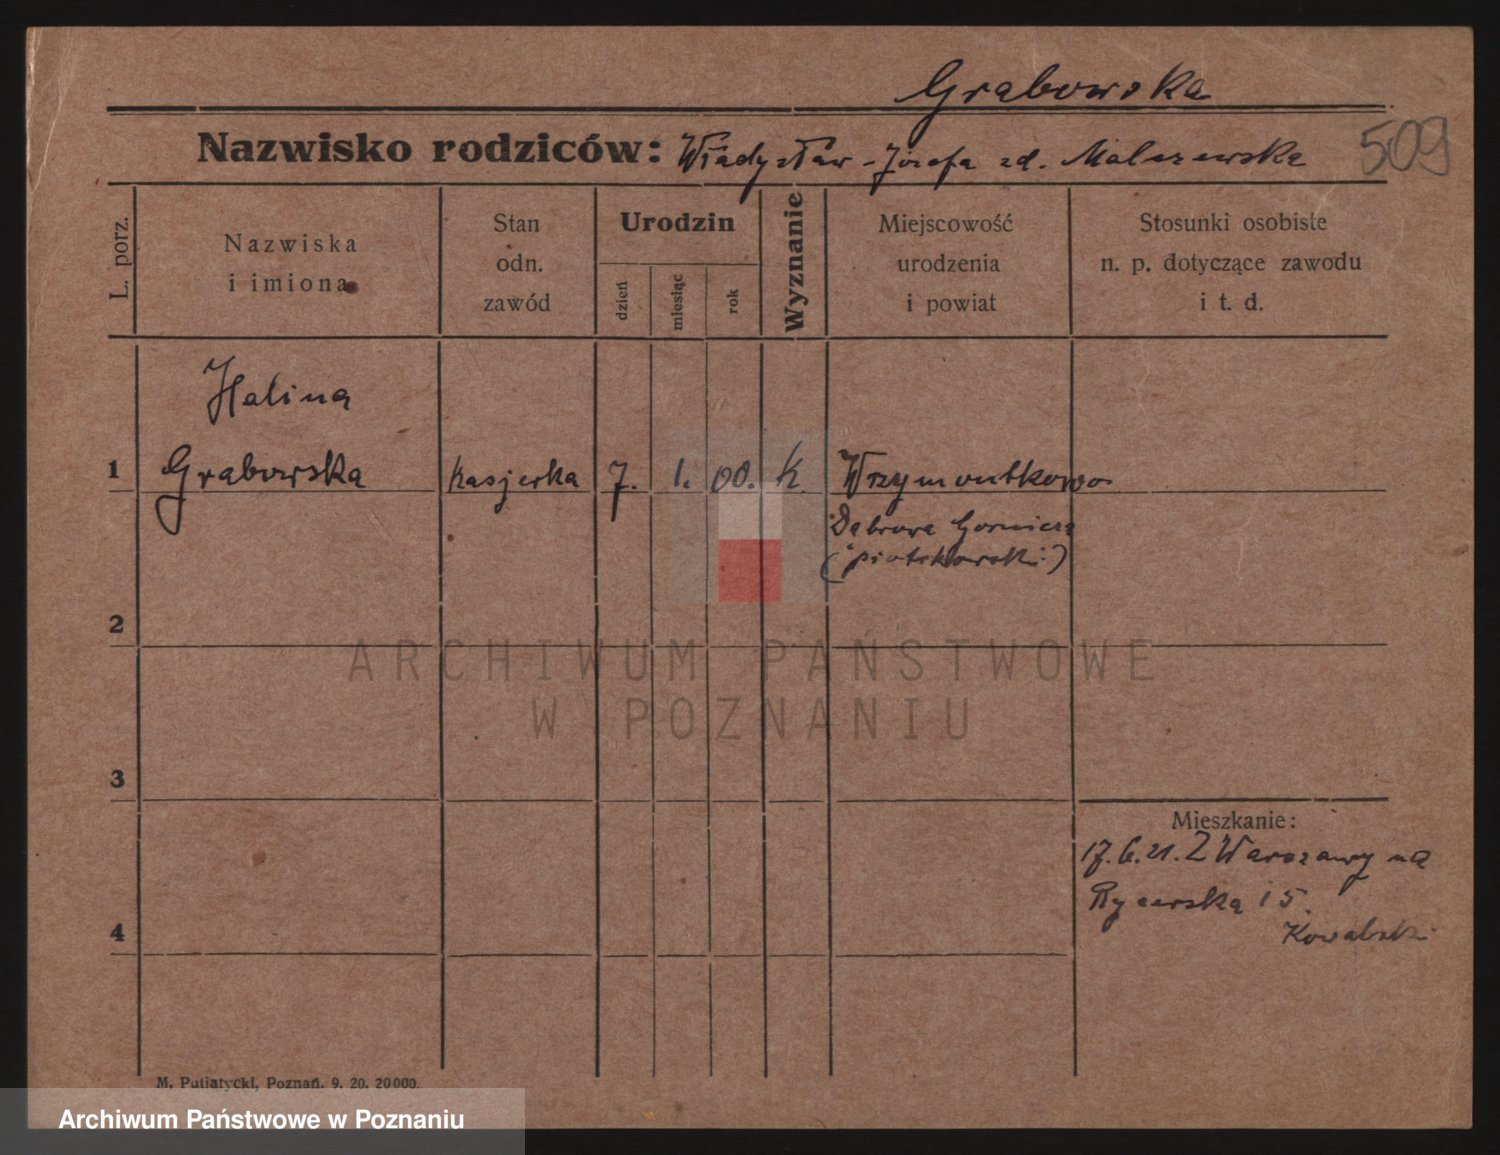 Grabowska
Nazwisko rodziców: Władysław - Józefa zd. Malczewska
509
L. porz.
Nazwiska
i imiona
Stan
odn.
zawód
Urodzin
dzień
miesiąc
rok
Wyznanie
Miejscowość
urodzenia
i powiat
Stosunki osobiste
n. p. dotyczące zawodu
i t. d.
Halina
1 Grabowska kasjerka 7. 1. 00. K.
Dąbrowa Gornicza
(piotrkowski)
2
ARCHIWUM PAŃSTWOWE
W POZNANIU
3
Mieszkanie:
17.6.21. Z Warszawy na
Rycerską 15.
Kowalski
4
M. Putiatycki, Poznań. 9. 20. 20000.
Archiwum Państwowe w Poznaniu